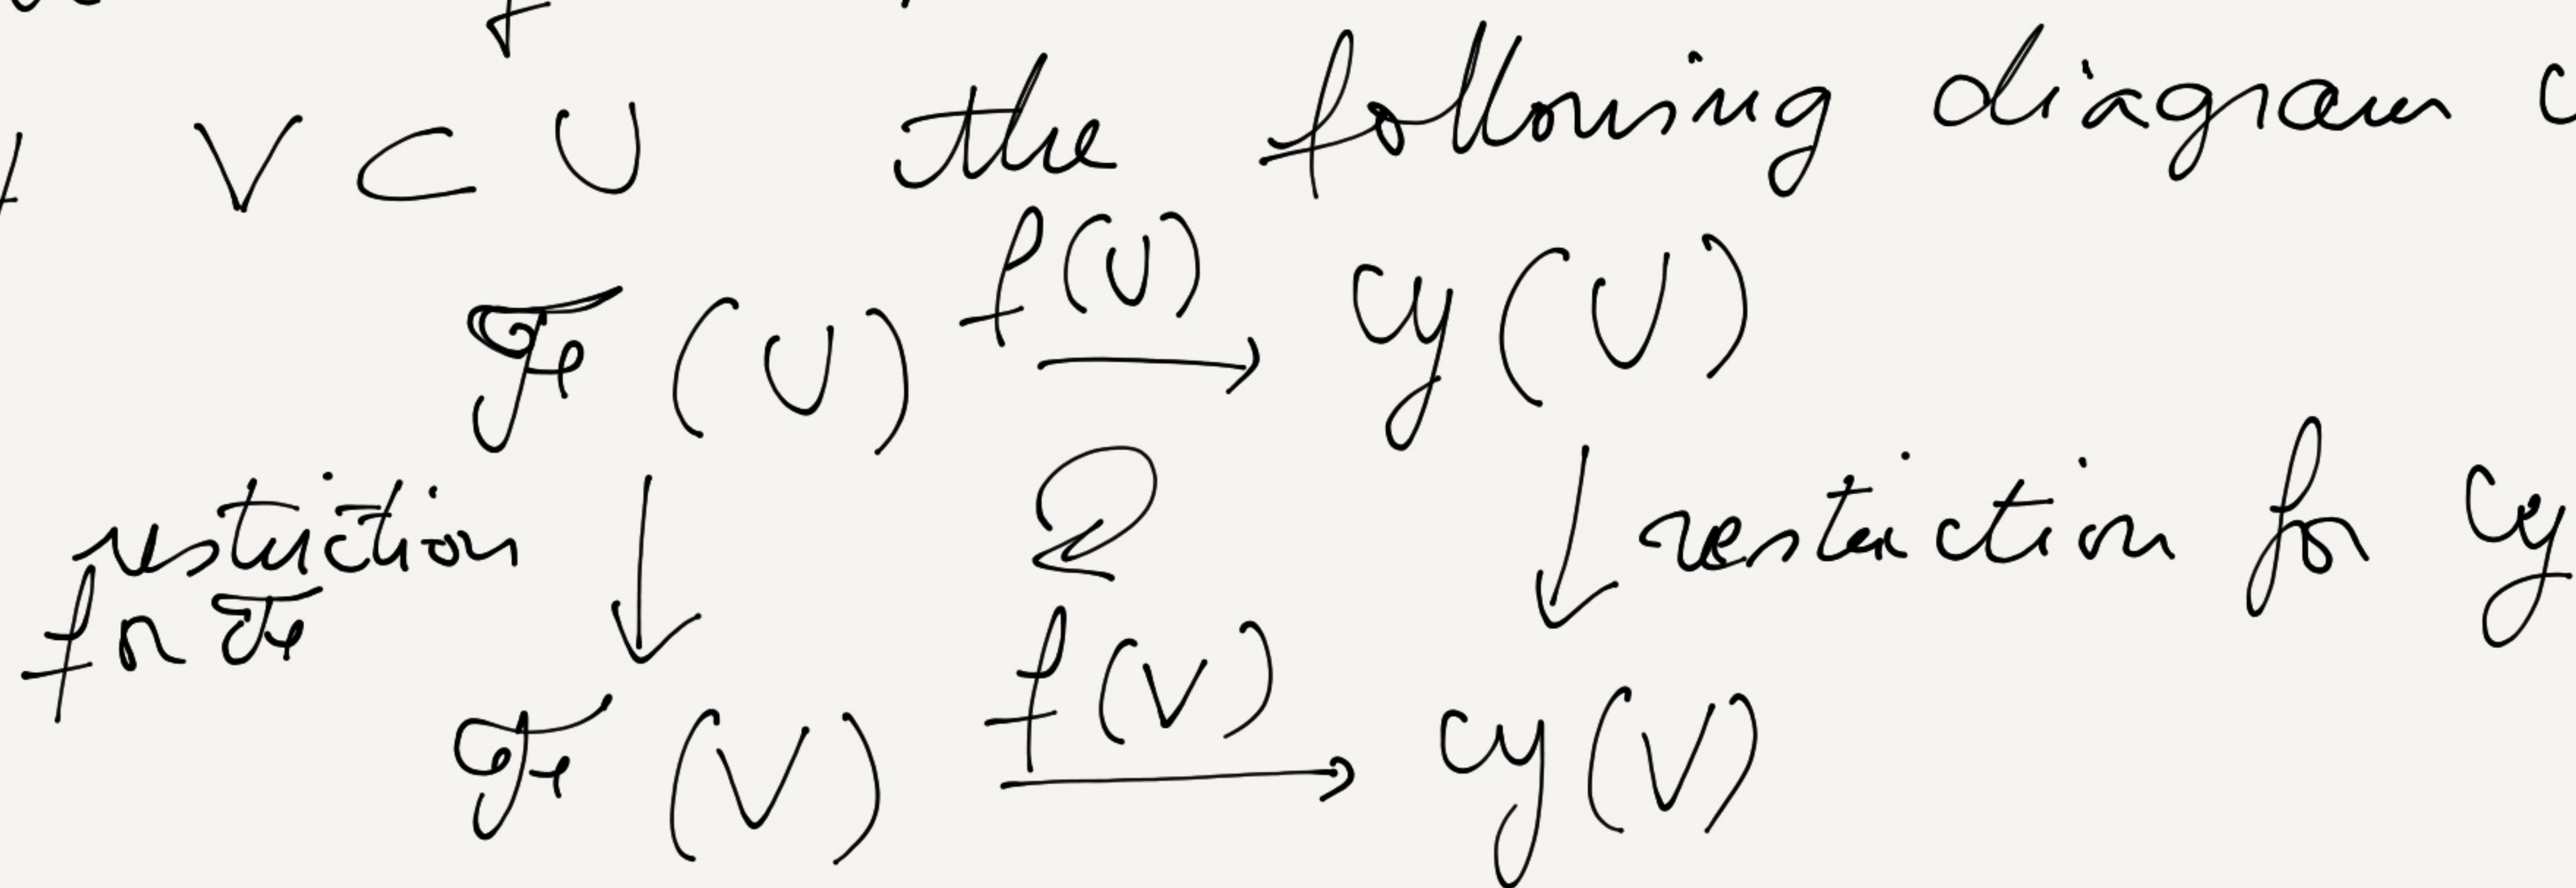 V ⊂ U the following diagram
ℱ(U) f(U) → 𝒢(U)
restriction ↓ ↓ restriction for 𝒢
for ℱ
ℱ(V) f(V) → 𝒢(V)